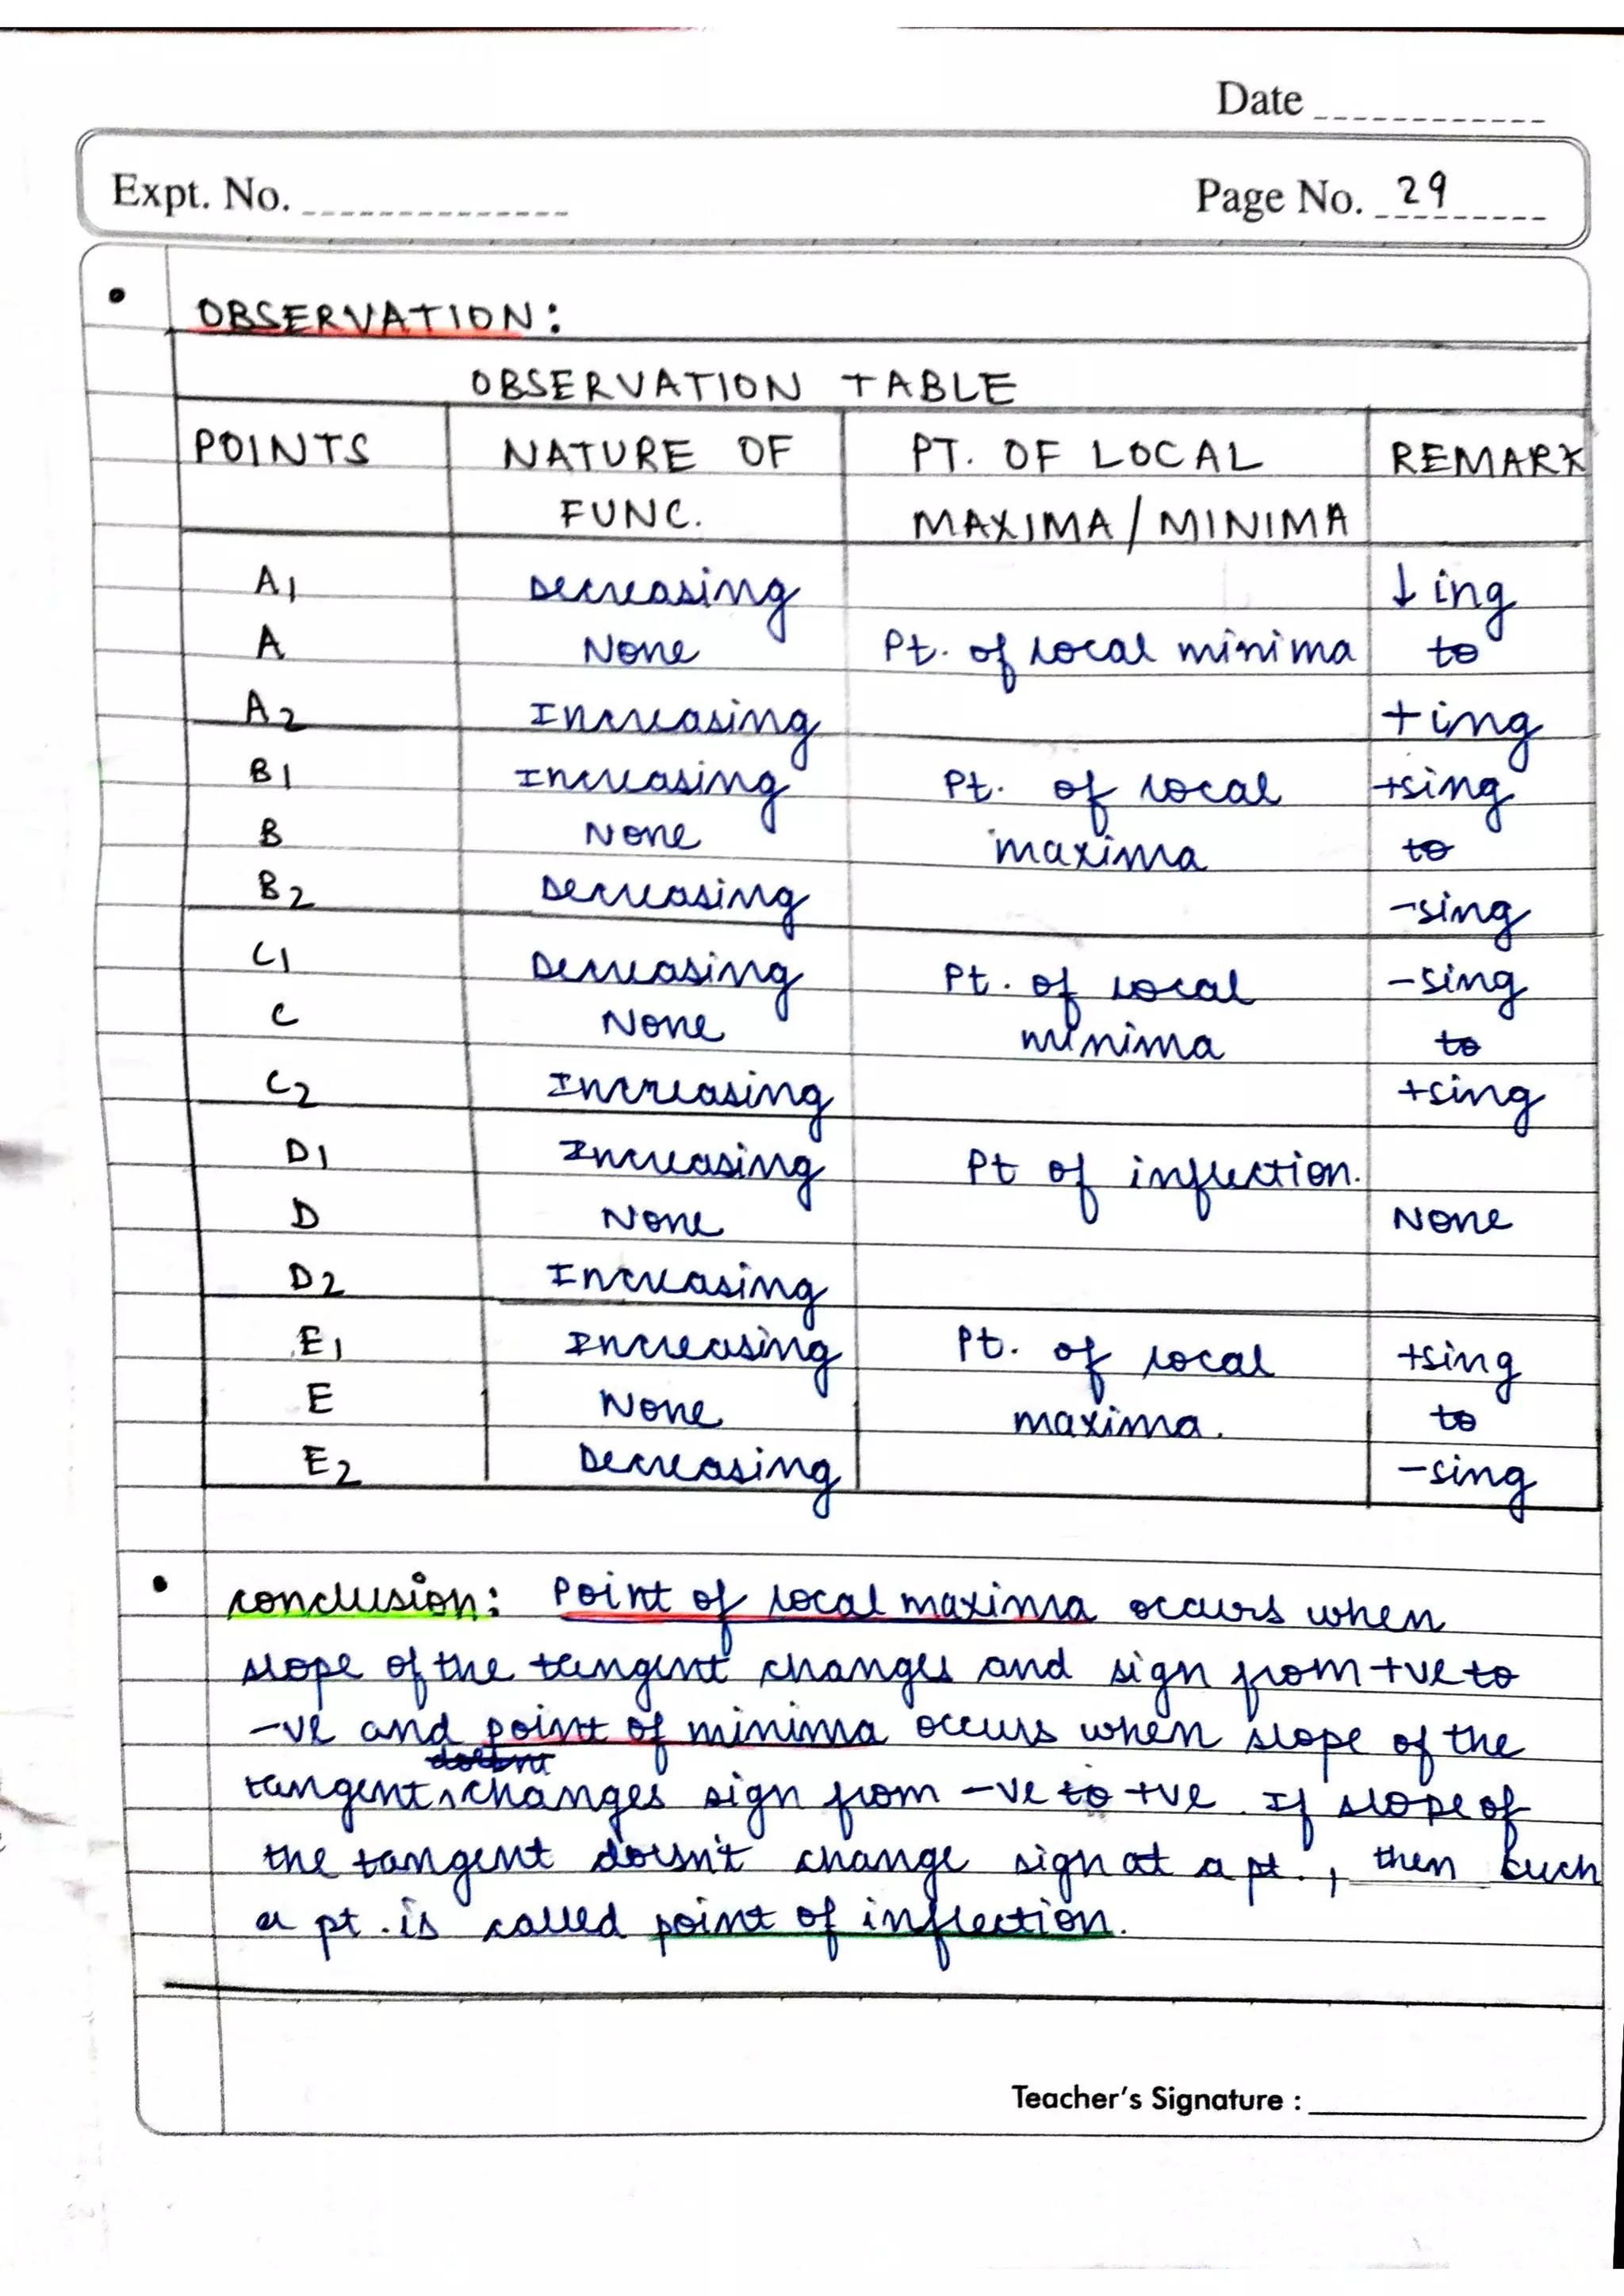 Date
Expt. No.
Page No. 29
• OBSERVATION:
OBSERVATION TABLE
POINTS NATURE OF PT. OF LOCAL REMARK
FUNC. MAXIMA / MINIMA
A1 Decreasing ↓ ing
A None Pt. of local minima to
A2 Increasing + ing
B1 Increasing Pt. of local +sing
B None maxima to
B2 Decreasing -sing
C1 Decreasing Pt. of local -sing
C None minima to
C2 Increasing +sing
D1 Increasing Pt of inflection.
D None None
D2 Increasing
E1 Increasing Pt. of local +sing
E None maxima. to
E2 Decreasing -sing
• conclusion: Point of local maxima occurs when
slope of the tangent changes and sign from +ve to
-ve and point of minima occurs when slope of the
tangent changes sign from -ve to +ve. If slope of
the tangent doesn't change sign at a pt., then such
a pt. is called point of inflection.
Teacher's Signature :